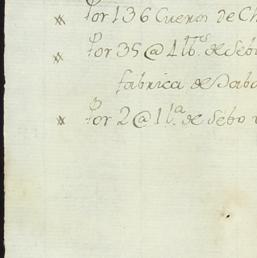 Por 136 Cueros de Ch
Por 35 @ 4 lbs de Sebo
fabrica de Jabo
Por 2 @ 1 lb.a de Sebo